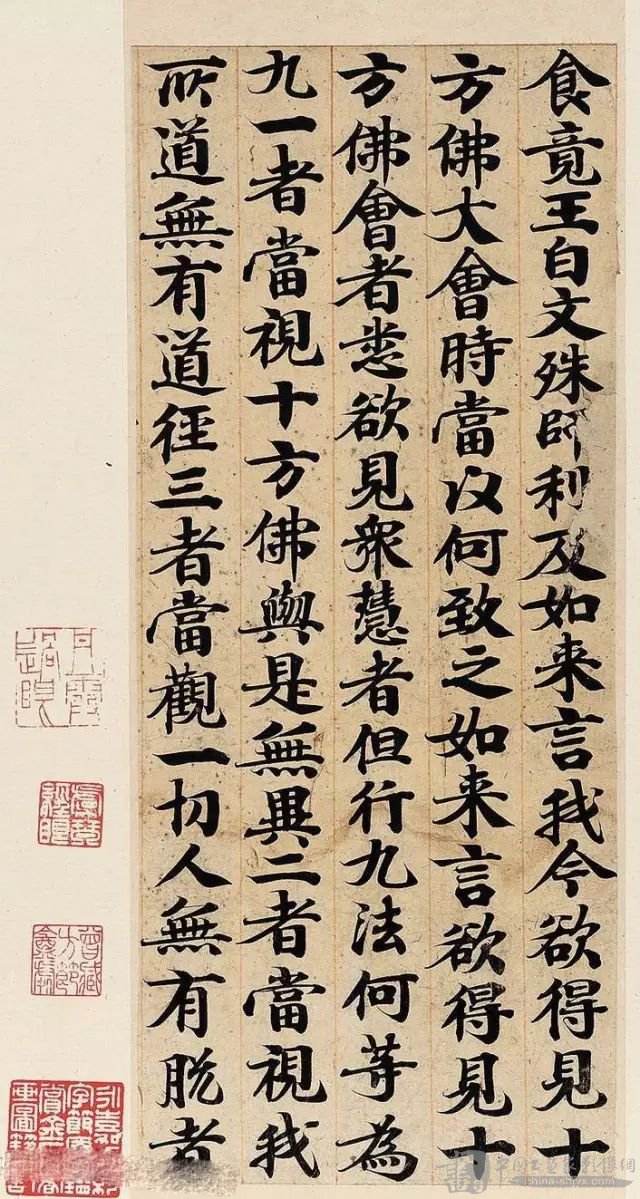 食竟王白文殊師利及如来言我今欲得見十
方佛大會時當以何致之如来言欲得見十
方佛會者悉欲見衆慧者但行九法何等為
九一者當視十方佛與是無異二者當視我
所道無有道徑三者當觀一切人無有脱者
china-shpx.com